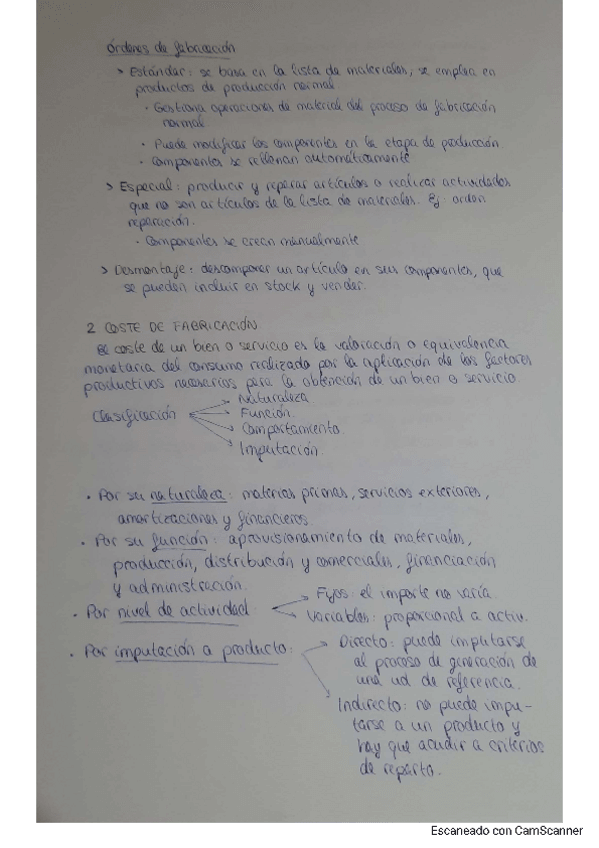 Órdenes de fabricación
> Estándar: se basa en la lista de materiales, se emplea en
productos de producción normal
· Gestiona operaciones de material del proceso de fabricación
normal
· Puede modificar los componentes en la etapa de producción.
· Componentes se rellenan automáticamente
> Especial: producir y reparar artículos o realizar actividades
que no son artículos de la lista de materiales. Ej: orden
reparación.
· Componentes se crean manualmente
> Desmontaje: descomponer un artículo en sus componentes, que
se pueden incluir en stock y vender.
2 COSTE DE FABRICACIÓN.
El coste de un bien o servicio es la valoración o equivalencia
monetaria del consumo realizado por la aplicación de los factores
productivos necesarios para la obtención de un bien o servicio.
Clasificación
Naturaleza
Función.
Comportamiento.
Imputación.
· Por su naturaleza: materias primas, servicios exteriores,
amortizaciones y financieros.
· Por su función: aprovisionamiento de materiales,
producción, distribución y comerciales, financiación
y administración.
· Por nivel de actividad
Fijos: el importe no varía.
Variables: proporcional a activ.
· Por imputación a producto:
Directo: puede imputarse
al proceso de generación de
una ud de referencia.
Indirecto: no puede impu-
tarse a un producto y
hay que acudir a criterios
de reparto.
Escaneado con CamScanner